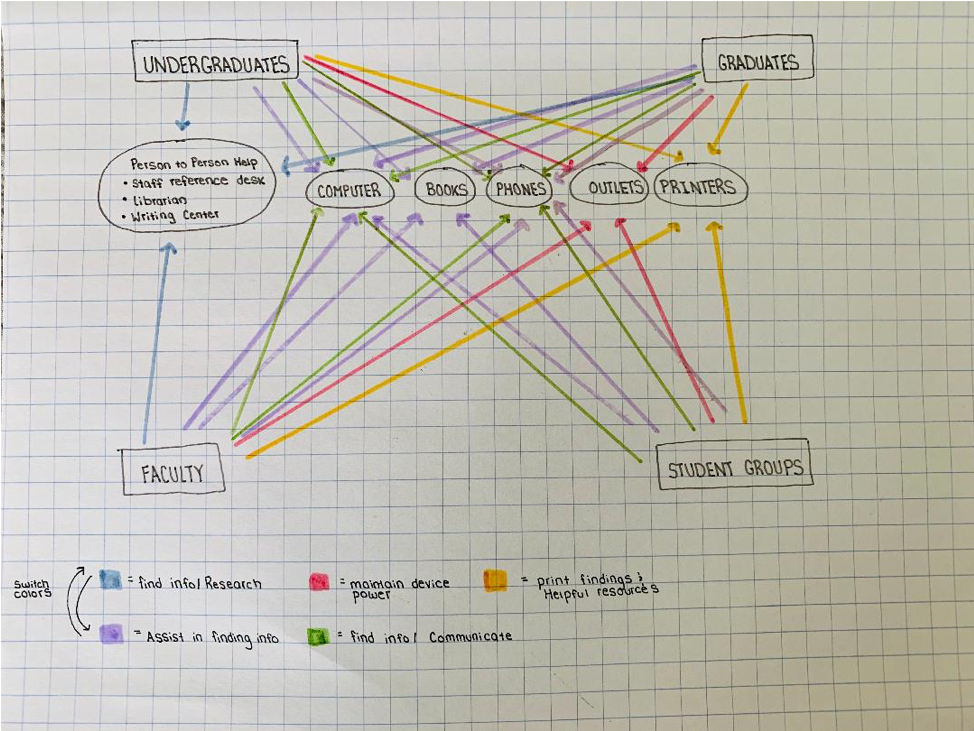 UNDERGRADUATES
GRADUATES
Person to Person Help
• Staff reference desk
• Librarian
• Writing Center
COMPUTER
BOOKS
PHONES
OUTLETS
PRINTERS
FACULTY
STUDENT GROUPS
Switch
colors
= find info/ Research
= maintain device
power
= print findings ;
Helpful resources
= Assist in finding info
= find info/ Communicate